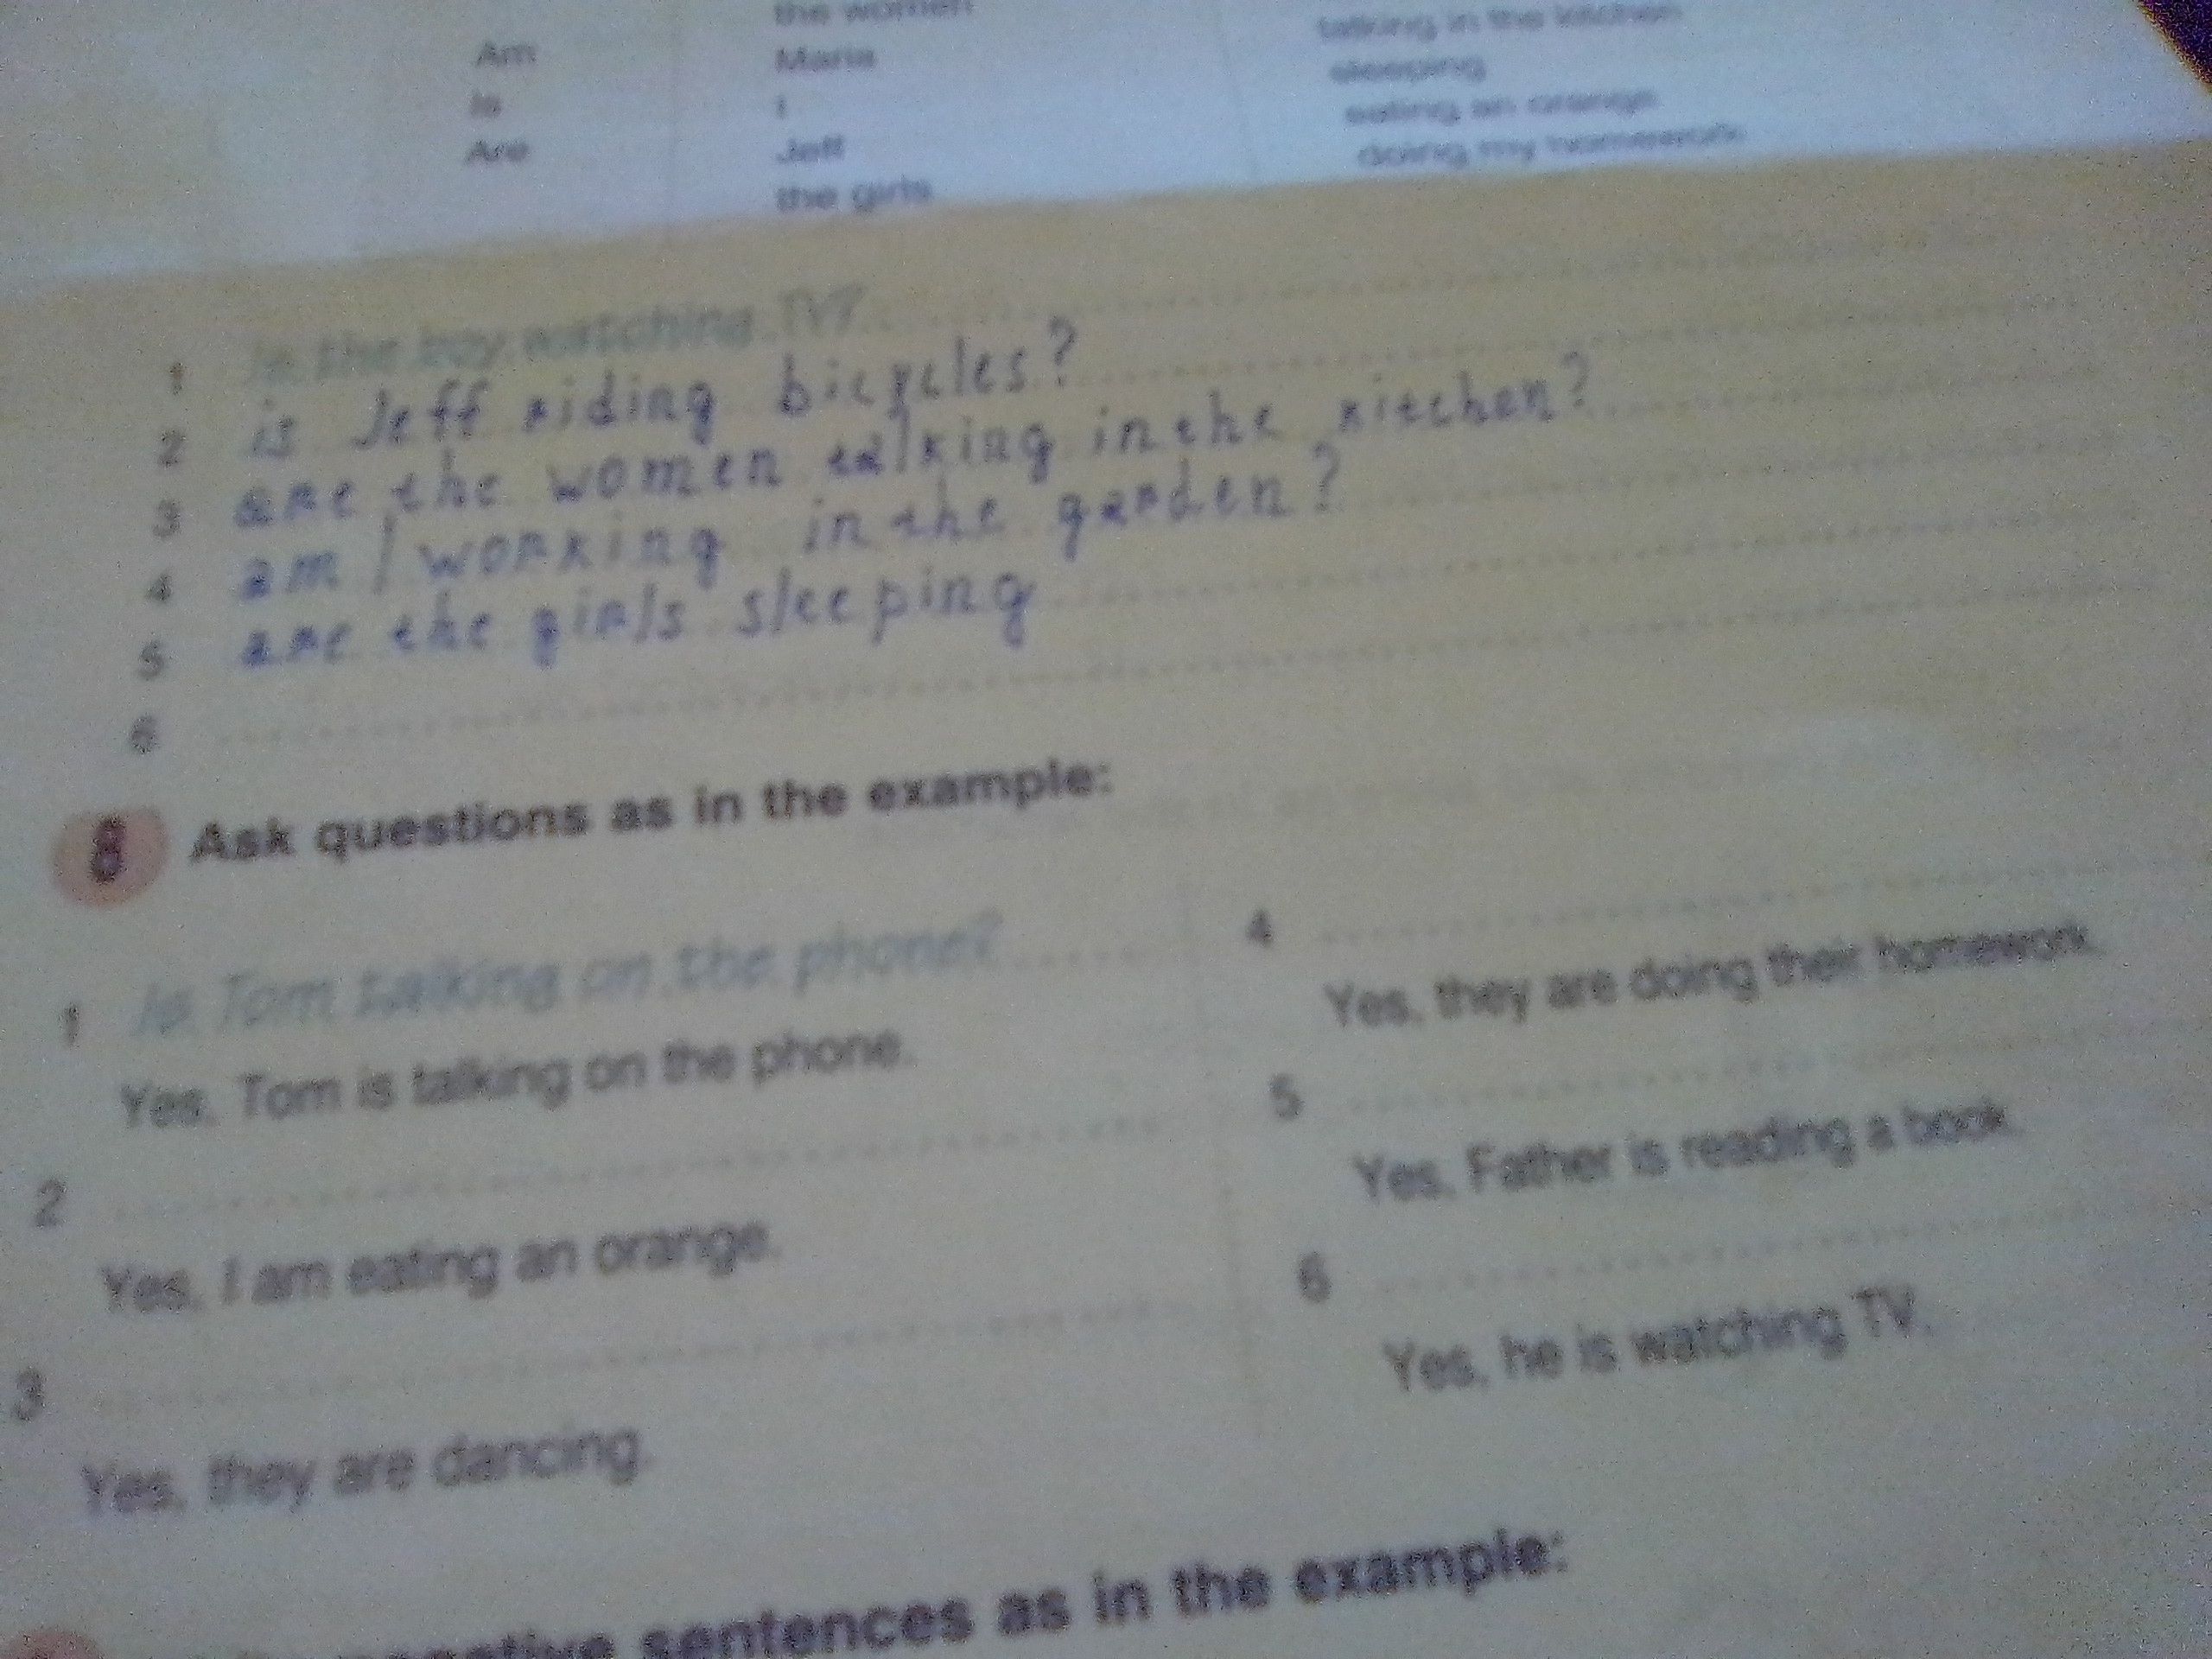 the women
talking in the kitchen
Am
Maria
sleeping
Is
I
eating an orange
Are
Jeff
doing my homework
the girls
1 Is the boy watching TV?
2 is Jeff riding bicycles?
3 are the women talking in the kitchen?
4 am I working in the garden?
5 are the girls sleeping
6
8 Ask questions as in the example:
1 Is Tom talking on the phone?
Yes, Tom is talking on the phone.
2
Yes, I am eating an orange.
3
Yes, they are dancing.
4
Yes, they are doing their homework.
5
Yes, Father is reading a book.
6
Yes, he is watching TV.
sentences as in the example: